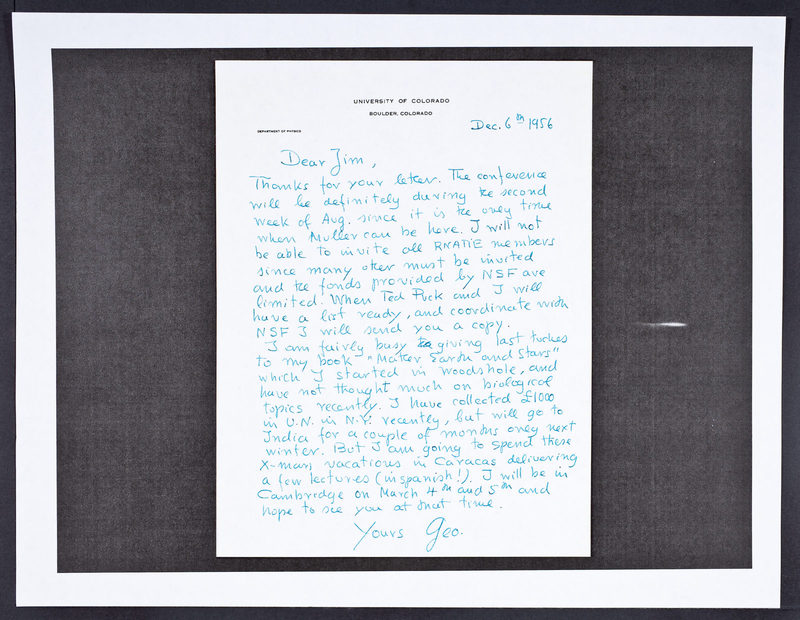 UNIVERSITY OF COLORADO
BOULDER, COLORADO
DEPARTMENT OF PHYSICS
Dec. 6th 1956
Dear Jim,
Thanks for your letter. The conference
will be definitely during the second
week of Aug. since it is the only time
when Muller can be here. I will not
be able to invite all RNATIE members
since many other must be invited
and the fonds provided by NSF are
limited. When Ted Puck and I will
have a list ready, and coordinate with
NSF I will send you a copy.
I am fairly busy giving last tuches
to my book "Mater, Earth and Stars"
which I started in Woodshole, and
have not thought much on biological
topics recently. I have collected £1000
in U.N. in N.Y. recently, but will go to
India for a couple of months only next
winter. But I am going to spend these
X-mas vacations in Caracas delivering
a few lectures (in spanish!). I will be in
Cambridge on March 4th and 5th and
hope to see you at that time.
Yours Geo.